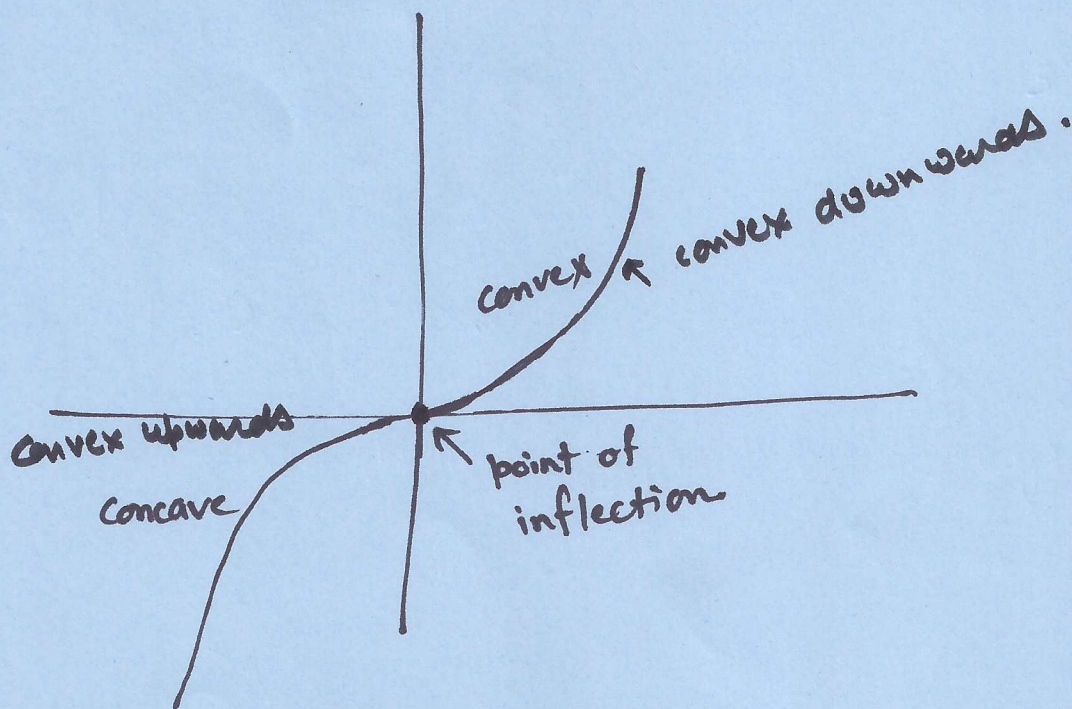 convex downwards.
convex
convex upwards
concave
point of
inflection